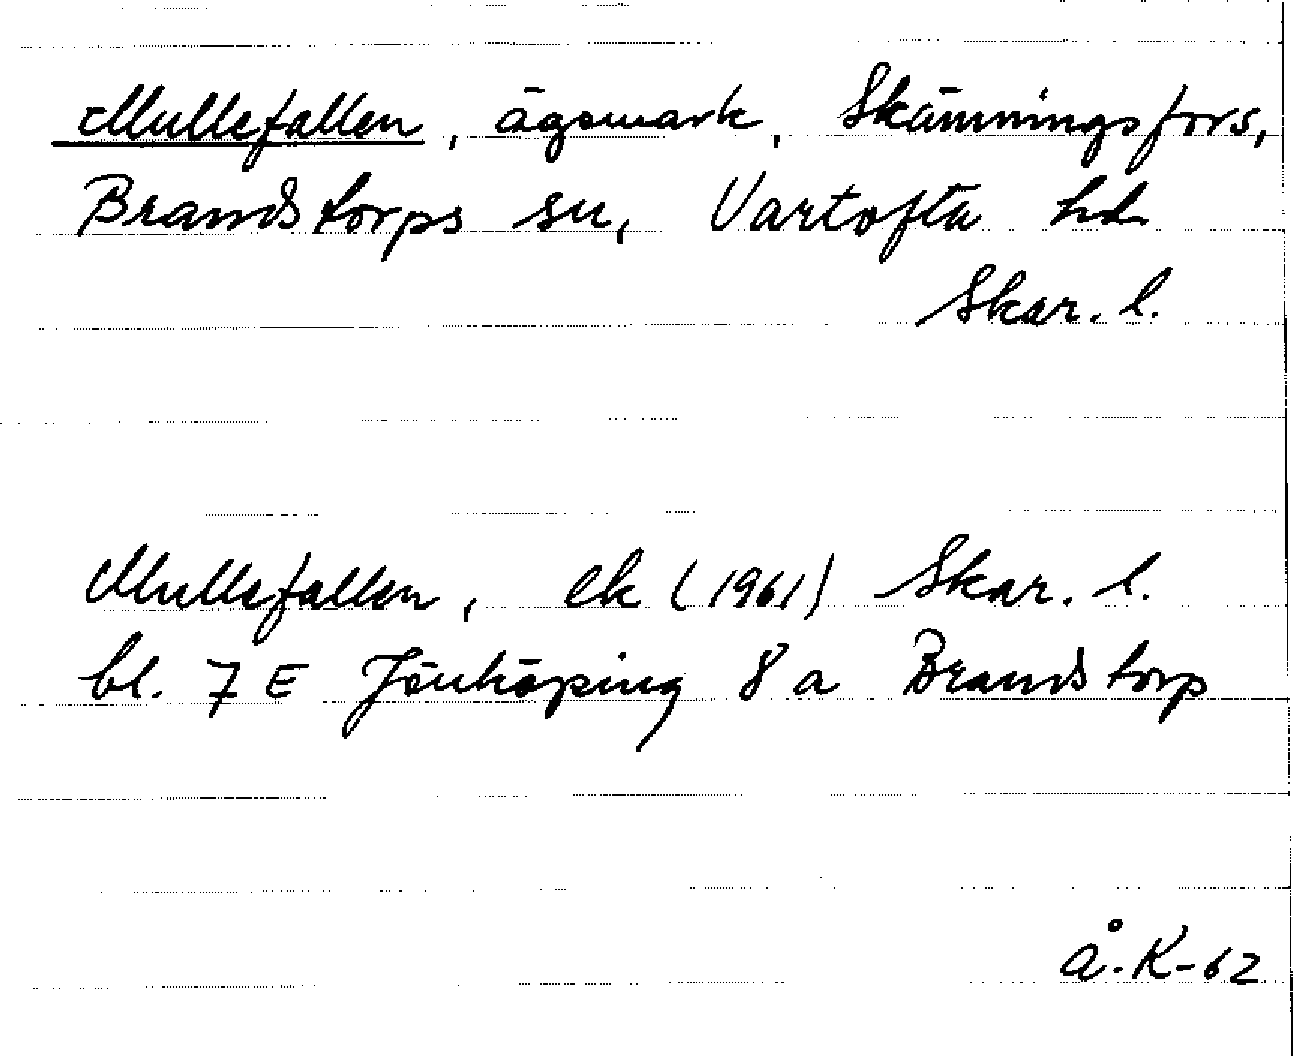 Mullefallen, ägomark, Skämningsfors,
Brandstorps sn, Vartofta hd
Skar. l.
Mullefallen, ek (1961) Skar. l.
bl. 7 E Jönköping 8 a Brandstorp
Å.K-62